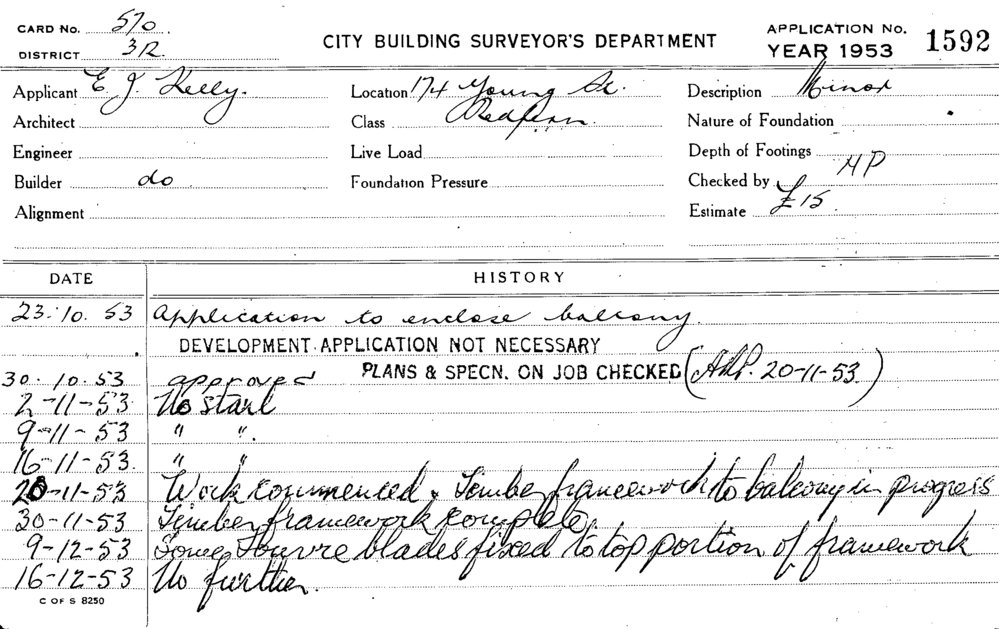 CARD No. 570
DISTRICT 3R
CITY BUILDING SURVEYOR'S DEPARTMENT
APPLICATION No.
YEAR 1953 1592
Applicant E. J. Kelly.
Location 174 Young St.
Description Minor
Architect
Class Redfern.
Nature of Foundation
Engineer
Live Load
Depth of Footings
Builder do
Foundation Pressure
Checked by HP
Alignment
Estimate £15
DATE HISTORY
23.10.53 Application to enclose balcony.
DEVELOPMENT APPLICATION NOT NECESSARY
30.10.53 approved PLANS & SPECN. ON JOB CHECKED (20-11-53.)
2-11-53 No start
9-11-53 " ".
16-11-53. " "
20-11-53 Work commenced & Timber framework to balcony in progress
30-11-53 Timber framework complete.
9-12-53 Some Louvre blades fixed to top portion of framework
16-12-53 No further.
C OF S 8250